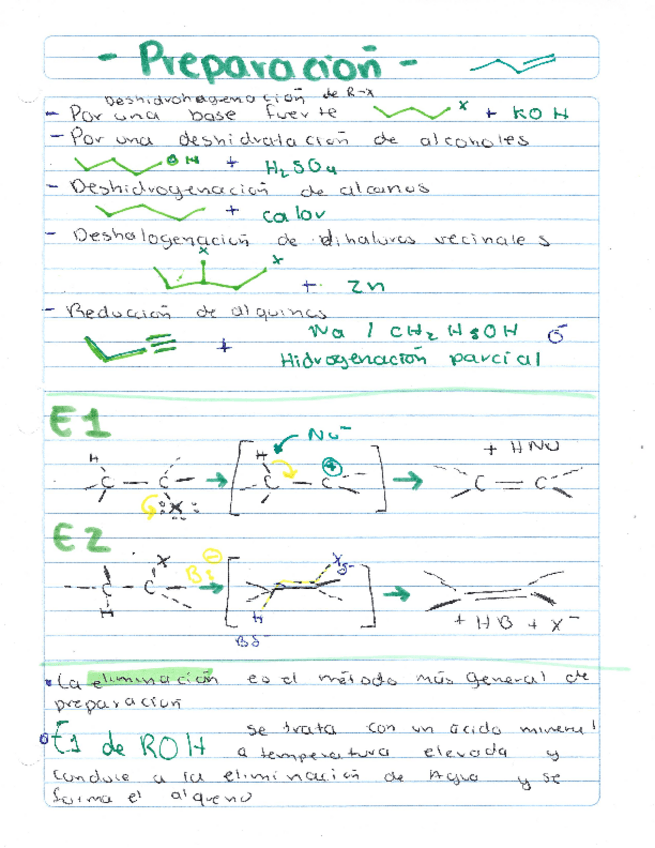 - Preparación -
Deshidrohagenación de R-X
- Por una base fuerte X + KOH
- Por una deshidratación de alcoholes
OH + H2SO4
- Deshidrogenación de alcanos
+ calor
- Deshalogenación de dihaluros vecinales
X X
+ Zn
- Reducción de alquinos
+ Na / CH2H5OH ó
Hidrogenación parcial
E1
Nu⁻
H H + + HNu
C - C C - C C = C
:X:
E2
X B: ⊖ X δ-
C - C
H H
Bδ⁻
+ HB + X⁻
• La eliminación es el método más general de
preparación
• E1 de ROH se trata con un ácido mineral
a temperatura elevada y
conduce a la eliminación de Agua y se
forma el alqueno